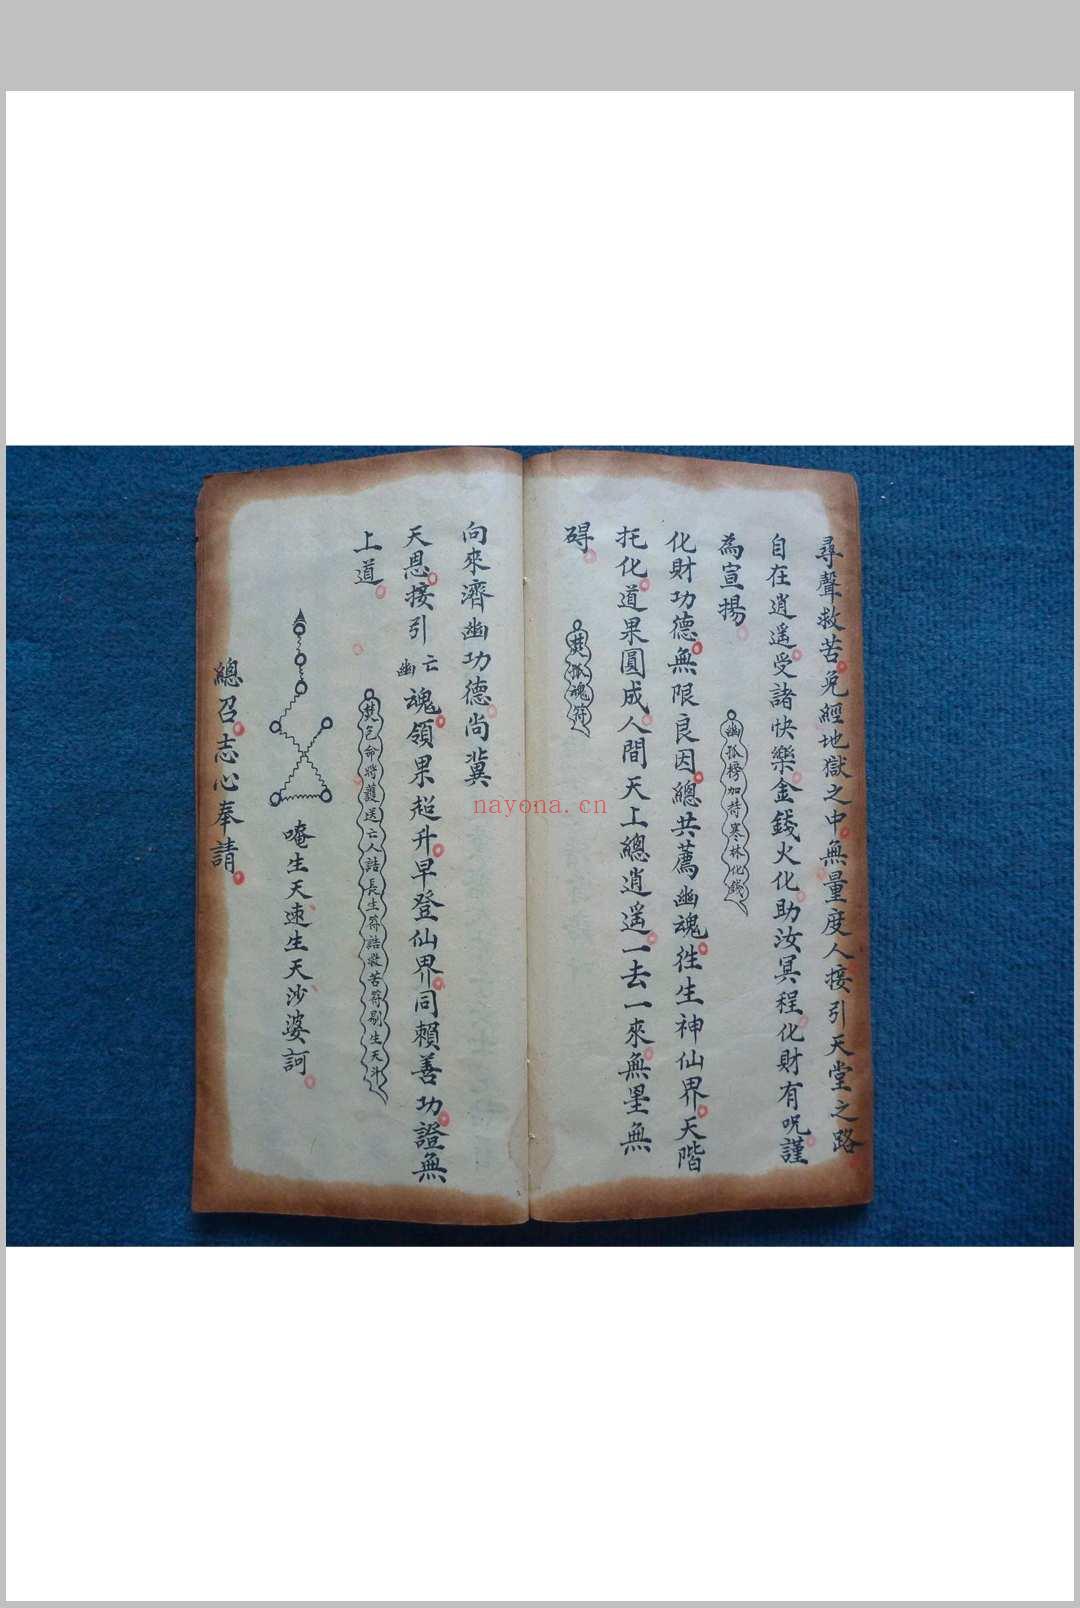 尋聲救苦免經地獄之中無量度人接引天堂之路
自在逍遙受諸快樂金錢火化助汝冥程化財有咒謹
為宣揚
幽孤榜加持寒林化錢
化財功德無限良因總共薦幽魂徃生神仙界天階
托化道果圓成人間天上總逍遙一去一來無罣無
碍
焚孤魂符
向來濟幽功德尚冀
天恩接引亡幽魂領果超升早登仙界同賴善功證無
上道
焚乞命將護送亡人誥長生符誥救苦符剔生天斗
唵生天速生天沙婆訶
總召志心奉請
nayona.cn